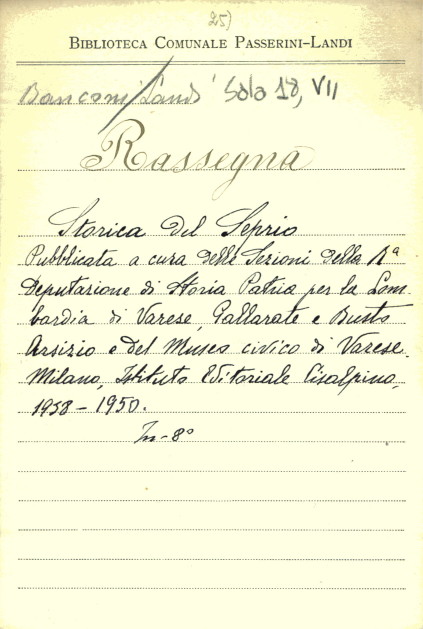 25)
BIBLIOTECA COMUNALE PASSERINI-LANDI
Banconi/Landi Sala 18, VII
Rassegna
Storica del Seprio
Pubblicata a cura delle Sezioni della Rª
Deputazione di Storia Patria per la Lom-
bardia di Varese, Gallarate e Busto
Arsizio e del Museo civico di Varese.
Milano, Istituto Editoriale Cisalpino,
1938-1950.
In-8°